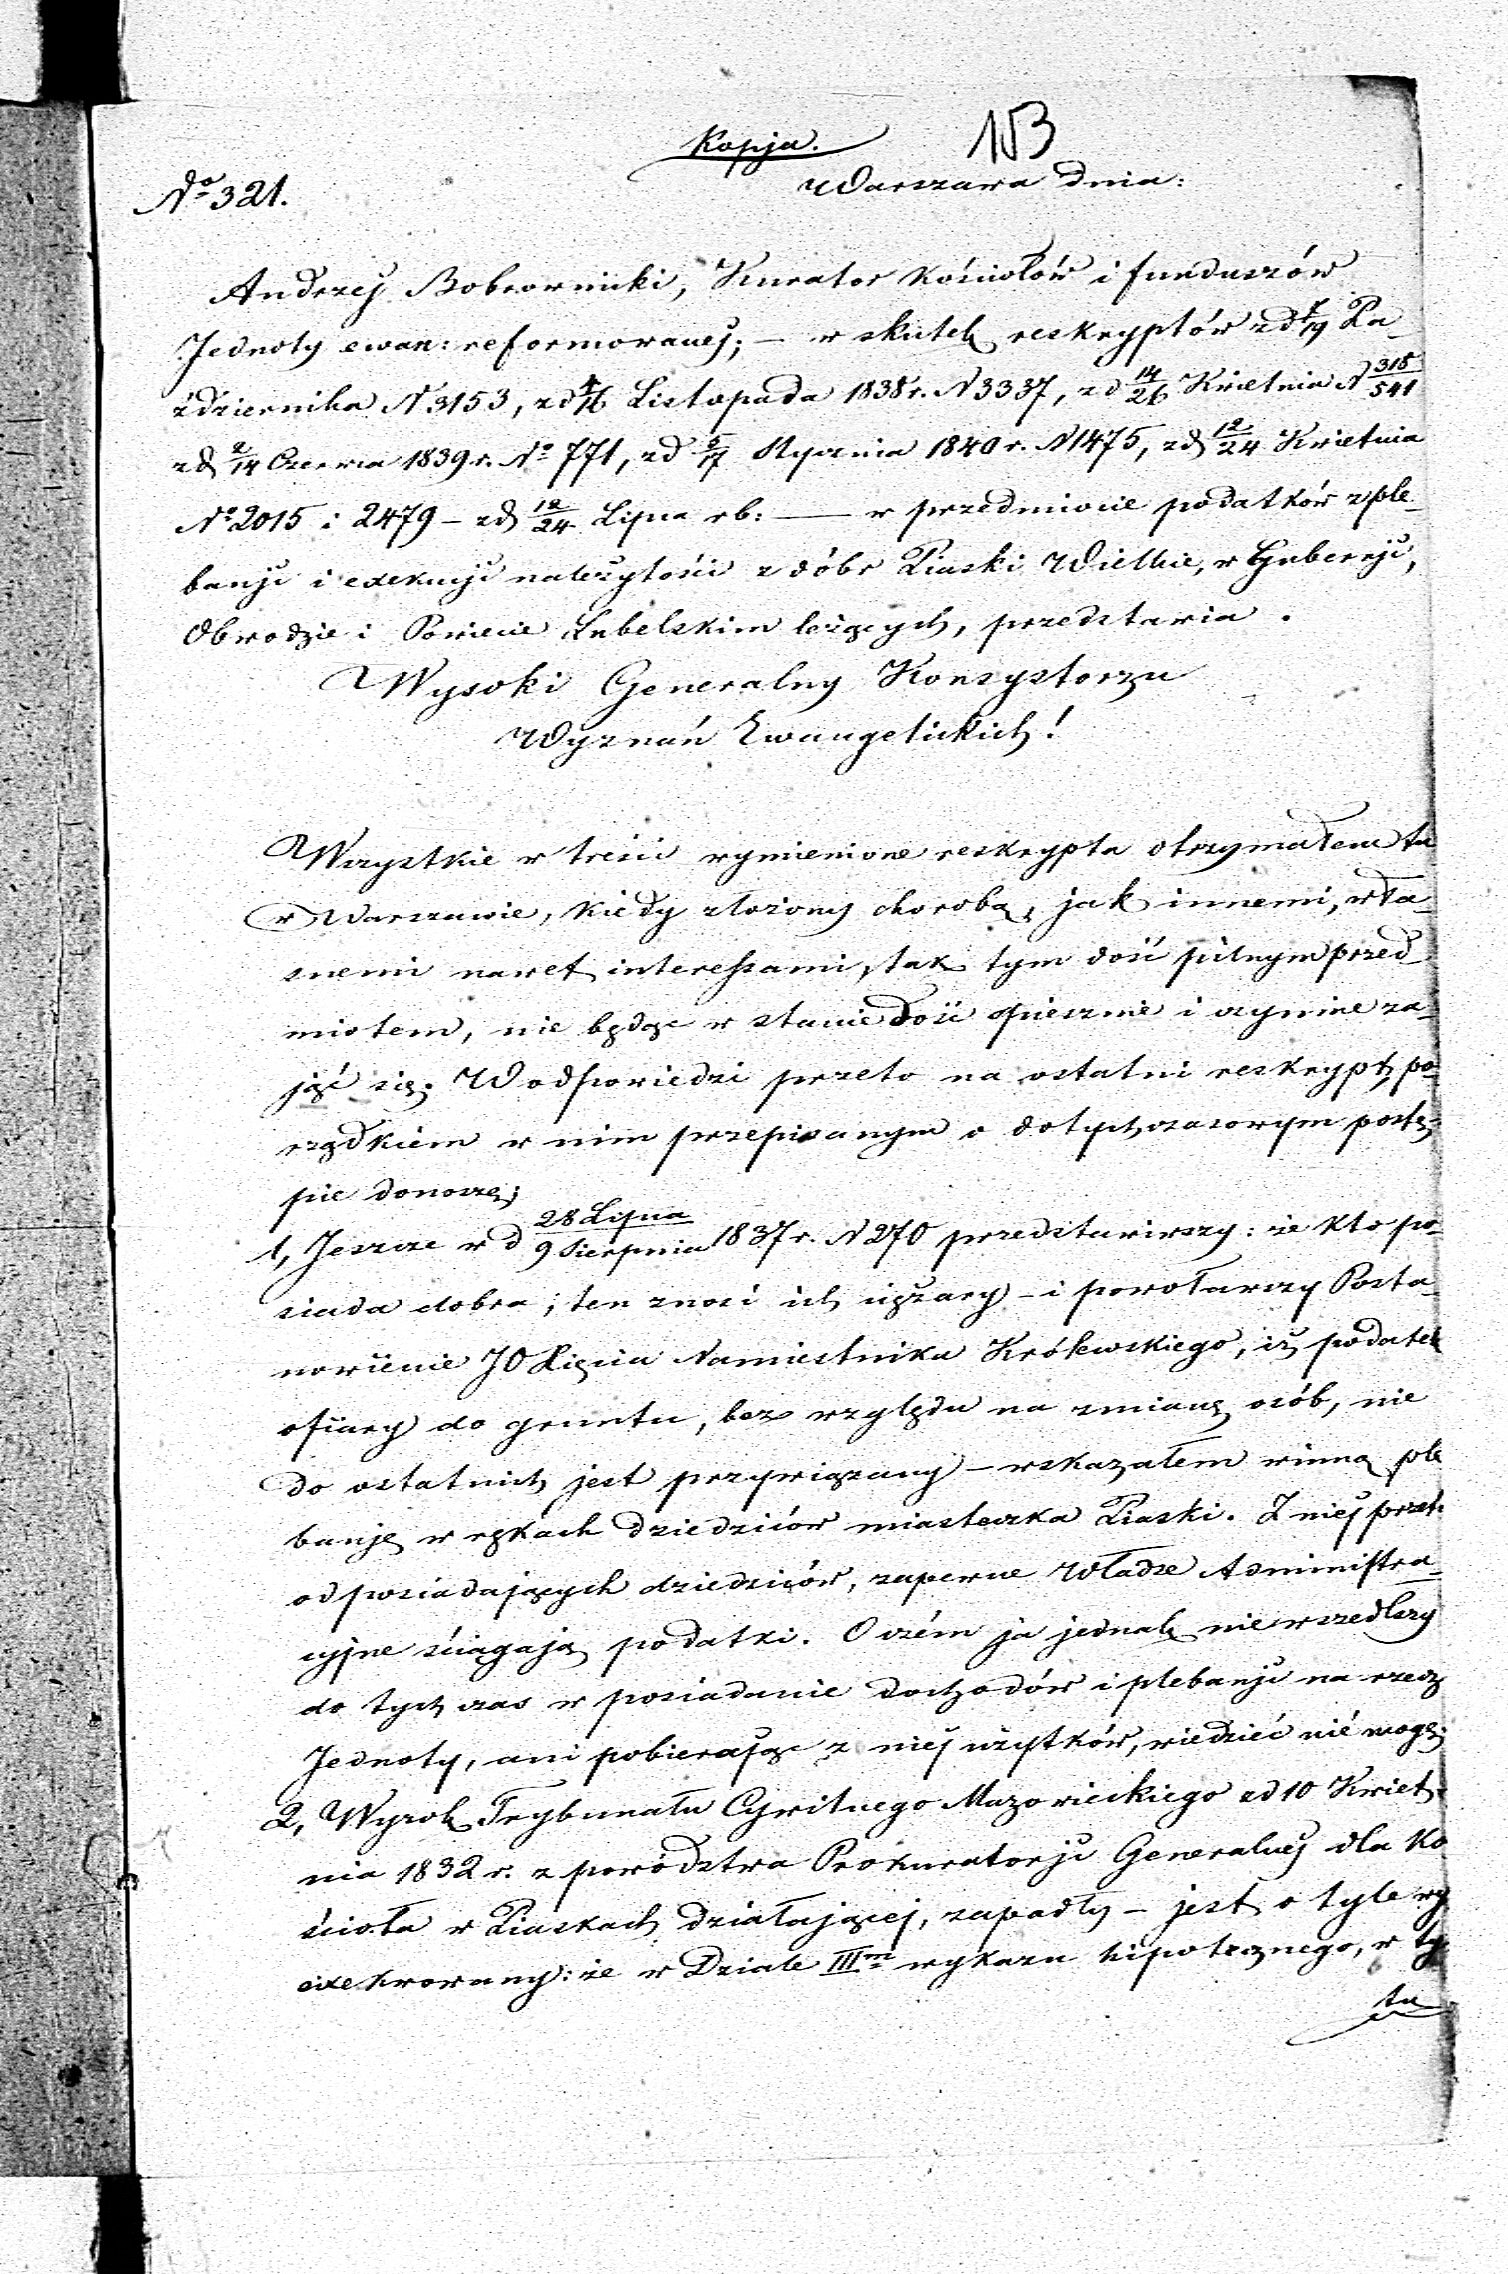 Kopja.
153
No 321.
Warszawa dnia:
Andrzej Bobrownicki, Kurator kościołów i funduszów
Jednoty ewan: reformowanej; – w skutek reskryptów z d 7/19 Pa-
ździernika N 3153, z d 4/16 Listopada 1838 r. N 3337, z d 14/26 Kwietnia N 315/541
z d 2/14 Czerwca 1839 r. No 771, z d 5/17 Stycznia 1840 r. N 1475, z d 12/24 Kwietnia
No 2015 i 2479 – z d 12/24 Lipca rb: — w przedmiocie podatków z ple-
banji i exekucji należytości z dóbr Piaski Wielkie, w Gubernji,
Obwodzie i Powiecie Lubelskim leżących, przedstawia.
Wysoki Generalny Konsystorzu
Wyznań Ewangelickich!
Wszystkie w treści wymienione reskrypta otrzymałem tu
w Warszawie, kiedy złożony chorobą, jak innemi, wła-
snemi nawet interessami, tak tym dość pilnym przed-
miotem, nie będąc w stanie dość spiesznie i czynnie za-
jąć się. W odpowiedzi przeto na ostatni reskrypt, po-
rządkiem w nim przepisanym o dotychczasowym postę-
pie donoszę;
1, Jeszcze w d 28 Lipca/9 Sierpnia 1837 r. N 270 przedstawiwszy: że kto po-
siada dobra; ten znosi ich ciężary – i powoławszy Posta-
nowienie JO Xięcia Namiestnika Królewskiego, iż podatek
ofiary do gruntu, bez względu na zmianę osób, nie
do ostatnich jest przywiązany – wskazałem winną ple
banję w rękach dziedziców miasteczka Piaski. Z niej przeto
od posiadających dziedziców, zapewne Władze Administra-
cyjne ściągają podatki. O czém ja jednak nie wszedłszy
do tych czas w posiadanie dochodów i plebanji na rzecz
Jednoty, ani pobierając z niej użytków, wiedzieć nié mogę.
2, Wyrok Trybunału Cywilnego Mazowieckiego z d 10 Kwiet-
nia 1832 r. z powództwa Prokuratorji Generalnej dla Ko
ścioła w Piaskach działającej, zapadły – jest o tyle wy
exekwowany: że w Dziale IIIm wykazu hipotecznego, w ty
tu